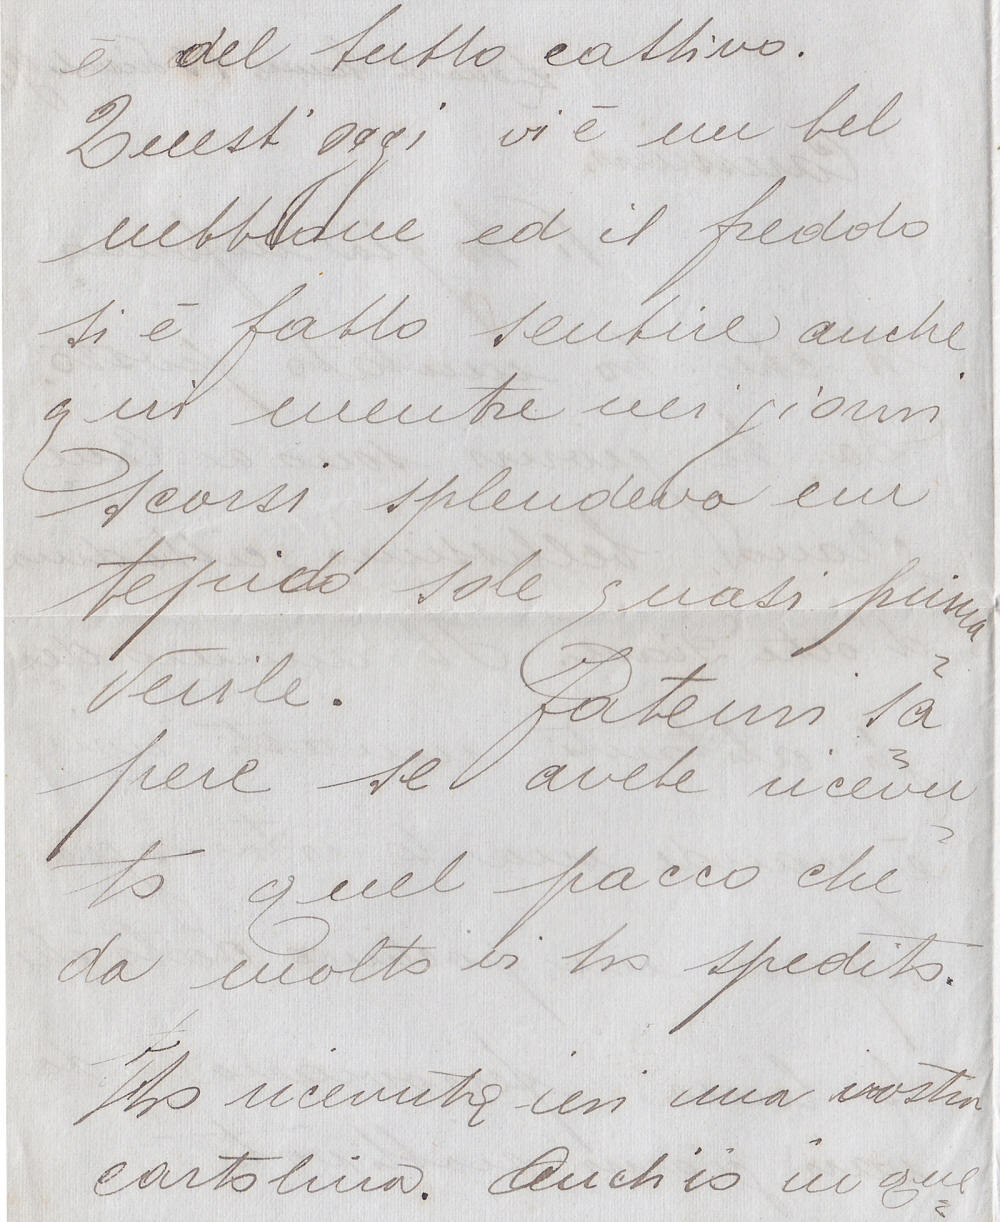 è del tutto cattivo.
Quest'oggi vi è un bel
nebbione ed il freddo
si è fatto sentire anche
qui mentre nei giorni
scorsi splendeva un
tepido sole quasi prima
verile. Fatemi sa=
pere se avete ricevu=
to quel pacco che
da molto vi ho spedito.
Ho ricevuto ieri una vostra
cartolina. Anch'io in que=